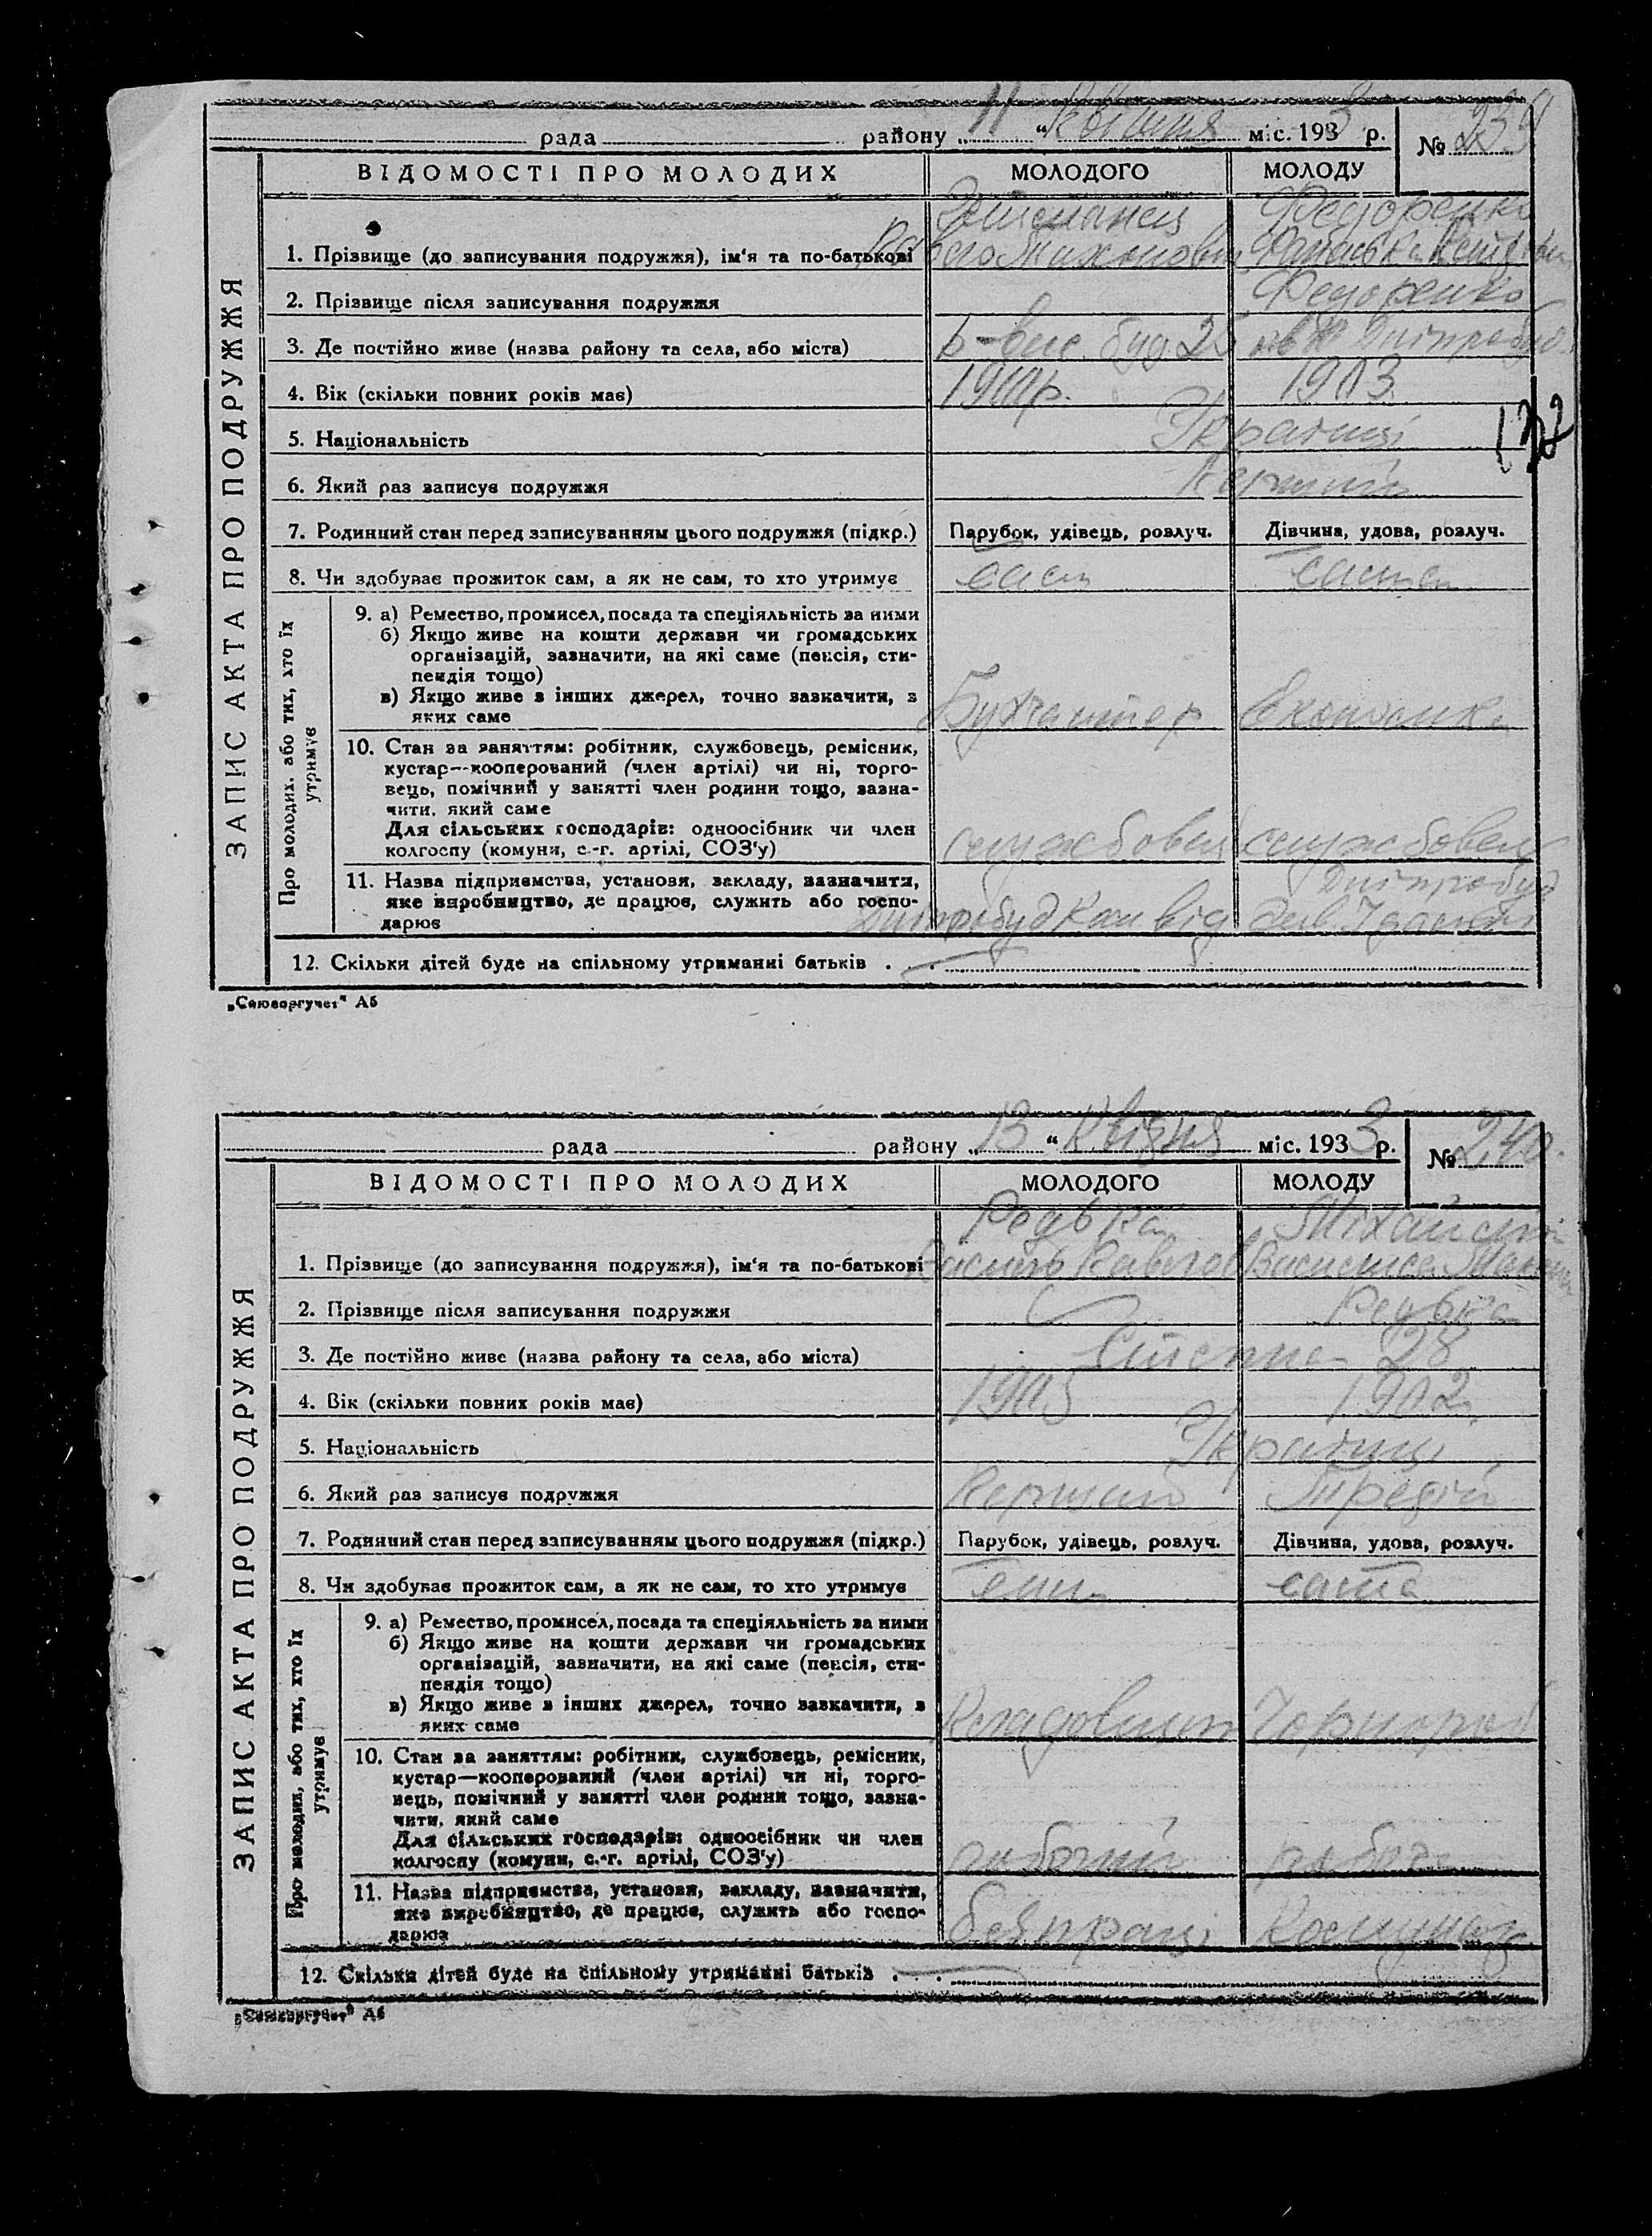 рада район­у „ 11 “ Квітня міс. 1933 р. № 239
ВІДОМОСТІ ПРО МОЛОДИХ МОЛОДОГО МОЛОДУ
Федоренко
1. Прізвище (до записування подружжя), ім'я та по-батькові
2. Прізвище після записування подружжя Федоренко
3. Де постійно живе (назва району та села, або міста) буд 25
4. Вік (скільки повних років має) 1903
5. Національність Українці
6. Який раз записує подружжя Перший
7. Родинний стан перед записуванням цього подружжя (підкр.) Парубок, удівець, розлуч. Дівчина, удова, розлуч.
8. Чи здобуває прожиток сам, а як не сам, то хто утримує сам сама
ЗАПИС АКТА ПРО ПОДРУЖЖЯ
Про молодих, або тих, хто їх
утримує
9. а) Ремество, промисел, посада та спеціяльність за ними
б) Якщо живе на кошти держави чи громадських
організацій, зазначити, на які саме (пенсія, сти-
пендія тощо)
в) Якщо живе з інших джерел, точно зазначити, з
яких саме Бухгалтер
10. Стан за заняттям: робітник, службовець, ремісник,
кустар—кооперований (член артілі) чи ні, торго-
вець, помічний у занятті член родини тощо, зазна-
чити, який саме
Для сільських господарів: одноосібник чи член
колгоспу (комуни, с.-г. артілі, СОЗ'у) службовець службовець
11. Назва підприємства, установи, закладу, зазначити,
яке виробництво, де працює, служить або госпо- Дніпробуд
дарює
12. Скільки дітей буде на спільному утриманні батьків . . . —
„Союзоргучет" А5
132
рада району „ 13 “ Квітня міс. 1933 р. № 240.
ВІДОМОСТІ ПРО МОЛОДИХ МОЛОДОГО МОЛОДУ
Редька
1. Прізвище (до записування подружжя), ім'я та по-батькові Василь Павлов Василиса
2. Прізвище після записування подружжя Редька
3. Де постійно живе (назва району та села, або міста) 28
4. Вік (скільки повних років має) 1905 1902
5. Національність Українці
6. Який раз записує подружжя Перший Третій
7. Родинний стан перед записуванням цього подружжя (підкр.) Парубок, удівець, розлуч. Дівчина, удова, розлуч.
8. Чи здобуває прожиток сам, а як не сам, то хто утримує сам сама
ЗАПИС АКТА ПРО ПОДРУЖЖЯ
Про молодих, або тих, хто їх
утримує
9. а) Ремество, промисел, посада та спеціяльність за ними
б) Якщо живе на кошти держави чи громадських
організацій, зазначити, на які саме (пенсія, сти-
пендія тощо)
в) Якщо живе з інших джерел, точно зазначити, з
яких саме Чорнороб
10. Стан за заняттям: робітник, службовець, ремісник,
кустар—кооперований (член артілі) чи ні, торго-
вець, помічний у занятті член родини тощо, зазна-
чити, який саме
Для сільських господарів: одноосібник чи член
колгоспу (комуни, с.-г. артілі, СОЗ'у)
11. Назва підприємства, установи, закладу, зазначити,
яке виробництво, де працює, служить або госпо-
дарює без праці Комунгосп
12. Скільки дітей буде на спільному утриманні батьків . . . —
„Союзоргучет" А5